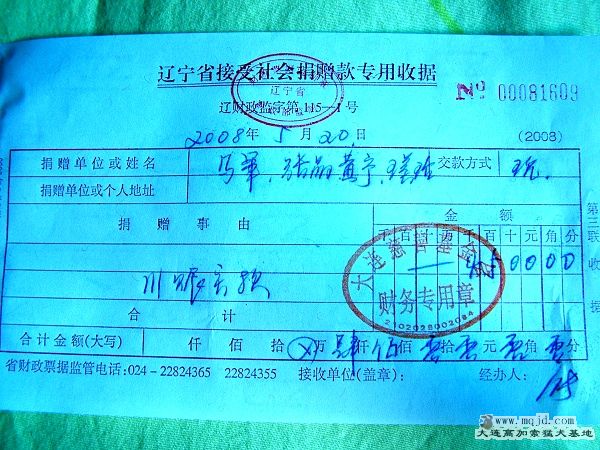 辽宁省接受社会捐赠款专用收据
辽宁省
辽财政监字第115-1号
Nº 00081609
2008年5月20日
(2008)
捐赠单位或姓名 马军、 交款方式 现
捐赠单位或个人地址
捐赠事由
金额
千百十万千百十元角分
0000
大连慈善基金
财务专用章
2102028002084
合计
合计金额(大写) 仟佰拾万肆仟佰拾元角分
省财政票据监管电话:024-22824365 22824355 接收单位(盖章): 经办人:
第三联 收据
www.mqjd.com
大连高加索猛犬基地